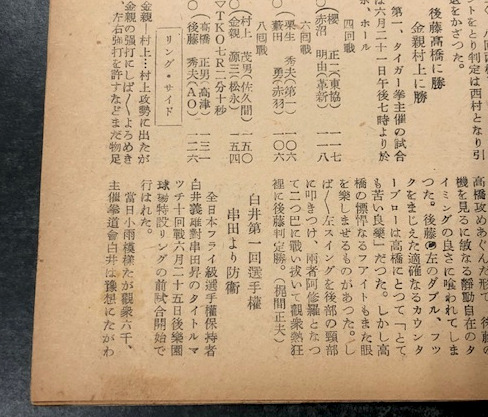 ントをとり判定は西村となり引
をかざつた。
後藤高橋に勝
金親村上に勝
第一、タイガー拳主催の試合
は六月二十一日午後七時より於
ホ、ホール
四回戦
櫻 正二(東協) 一一七
○赤沼 明由(革新) 一一八
六回戦
栗生 秀夫(第一) 一〇六
○薮田 勇(赤羽) 一〇六
八回戦
村上 茂男(佐久間) 一五〇
○金親 源三(松永) 一五四
▽TKO七R二分十秒
高橋 正男(高津) 一三一
○後藤 秀夫(AO) 一二六
リング・サイド
金親 村上…村上攻勢に出たが
金親の強打にしば〱よろめき
、左右強打を許すなどまだ物足
高橋攻めあぐんだ形で、後藤の
機を見るに敏なる靜動自在のタ
イミングの良さに喰われてしま
つた。後藤の左のダブル、フッ
クをまじえた適確なカウンタ
ーブローは高橋にとつて「とて
も苦い良藥」だつた。しかし高
橋の慓悍なるフアイトもまた眼
を樂しませるものがあつた。し
ば〱左スイングを後部の頸部
に叩きつけ、兩者阿修羅となつ
て二つに一つに戰い抜いて觀衆熱狂
裡に後藤判定勝。(梶間正夫)
白井第一回選手權
串田より防衞
全日本フライ級選手權保持者
白井義雄對串田昇のタイトルマ
ツチ十回戰六月二十五日後樂園
球場特設リングの前試合開始で
行はれた。
當日小雨模様だが觀衆六千、
主催拳道會白井は豫想にたがわ